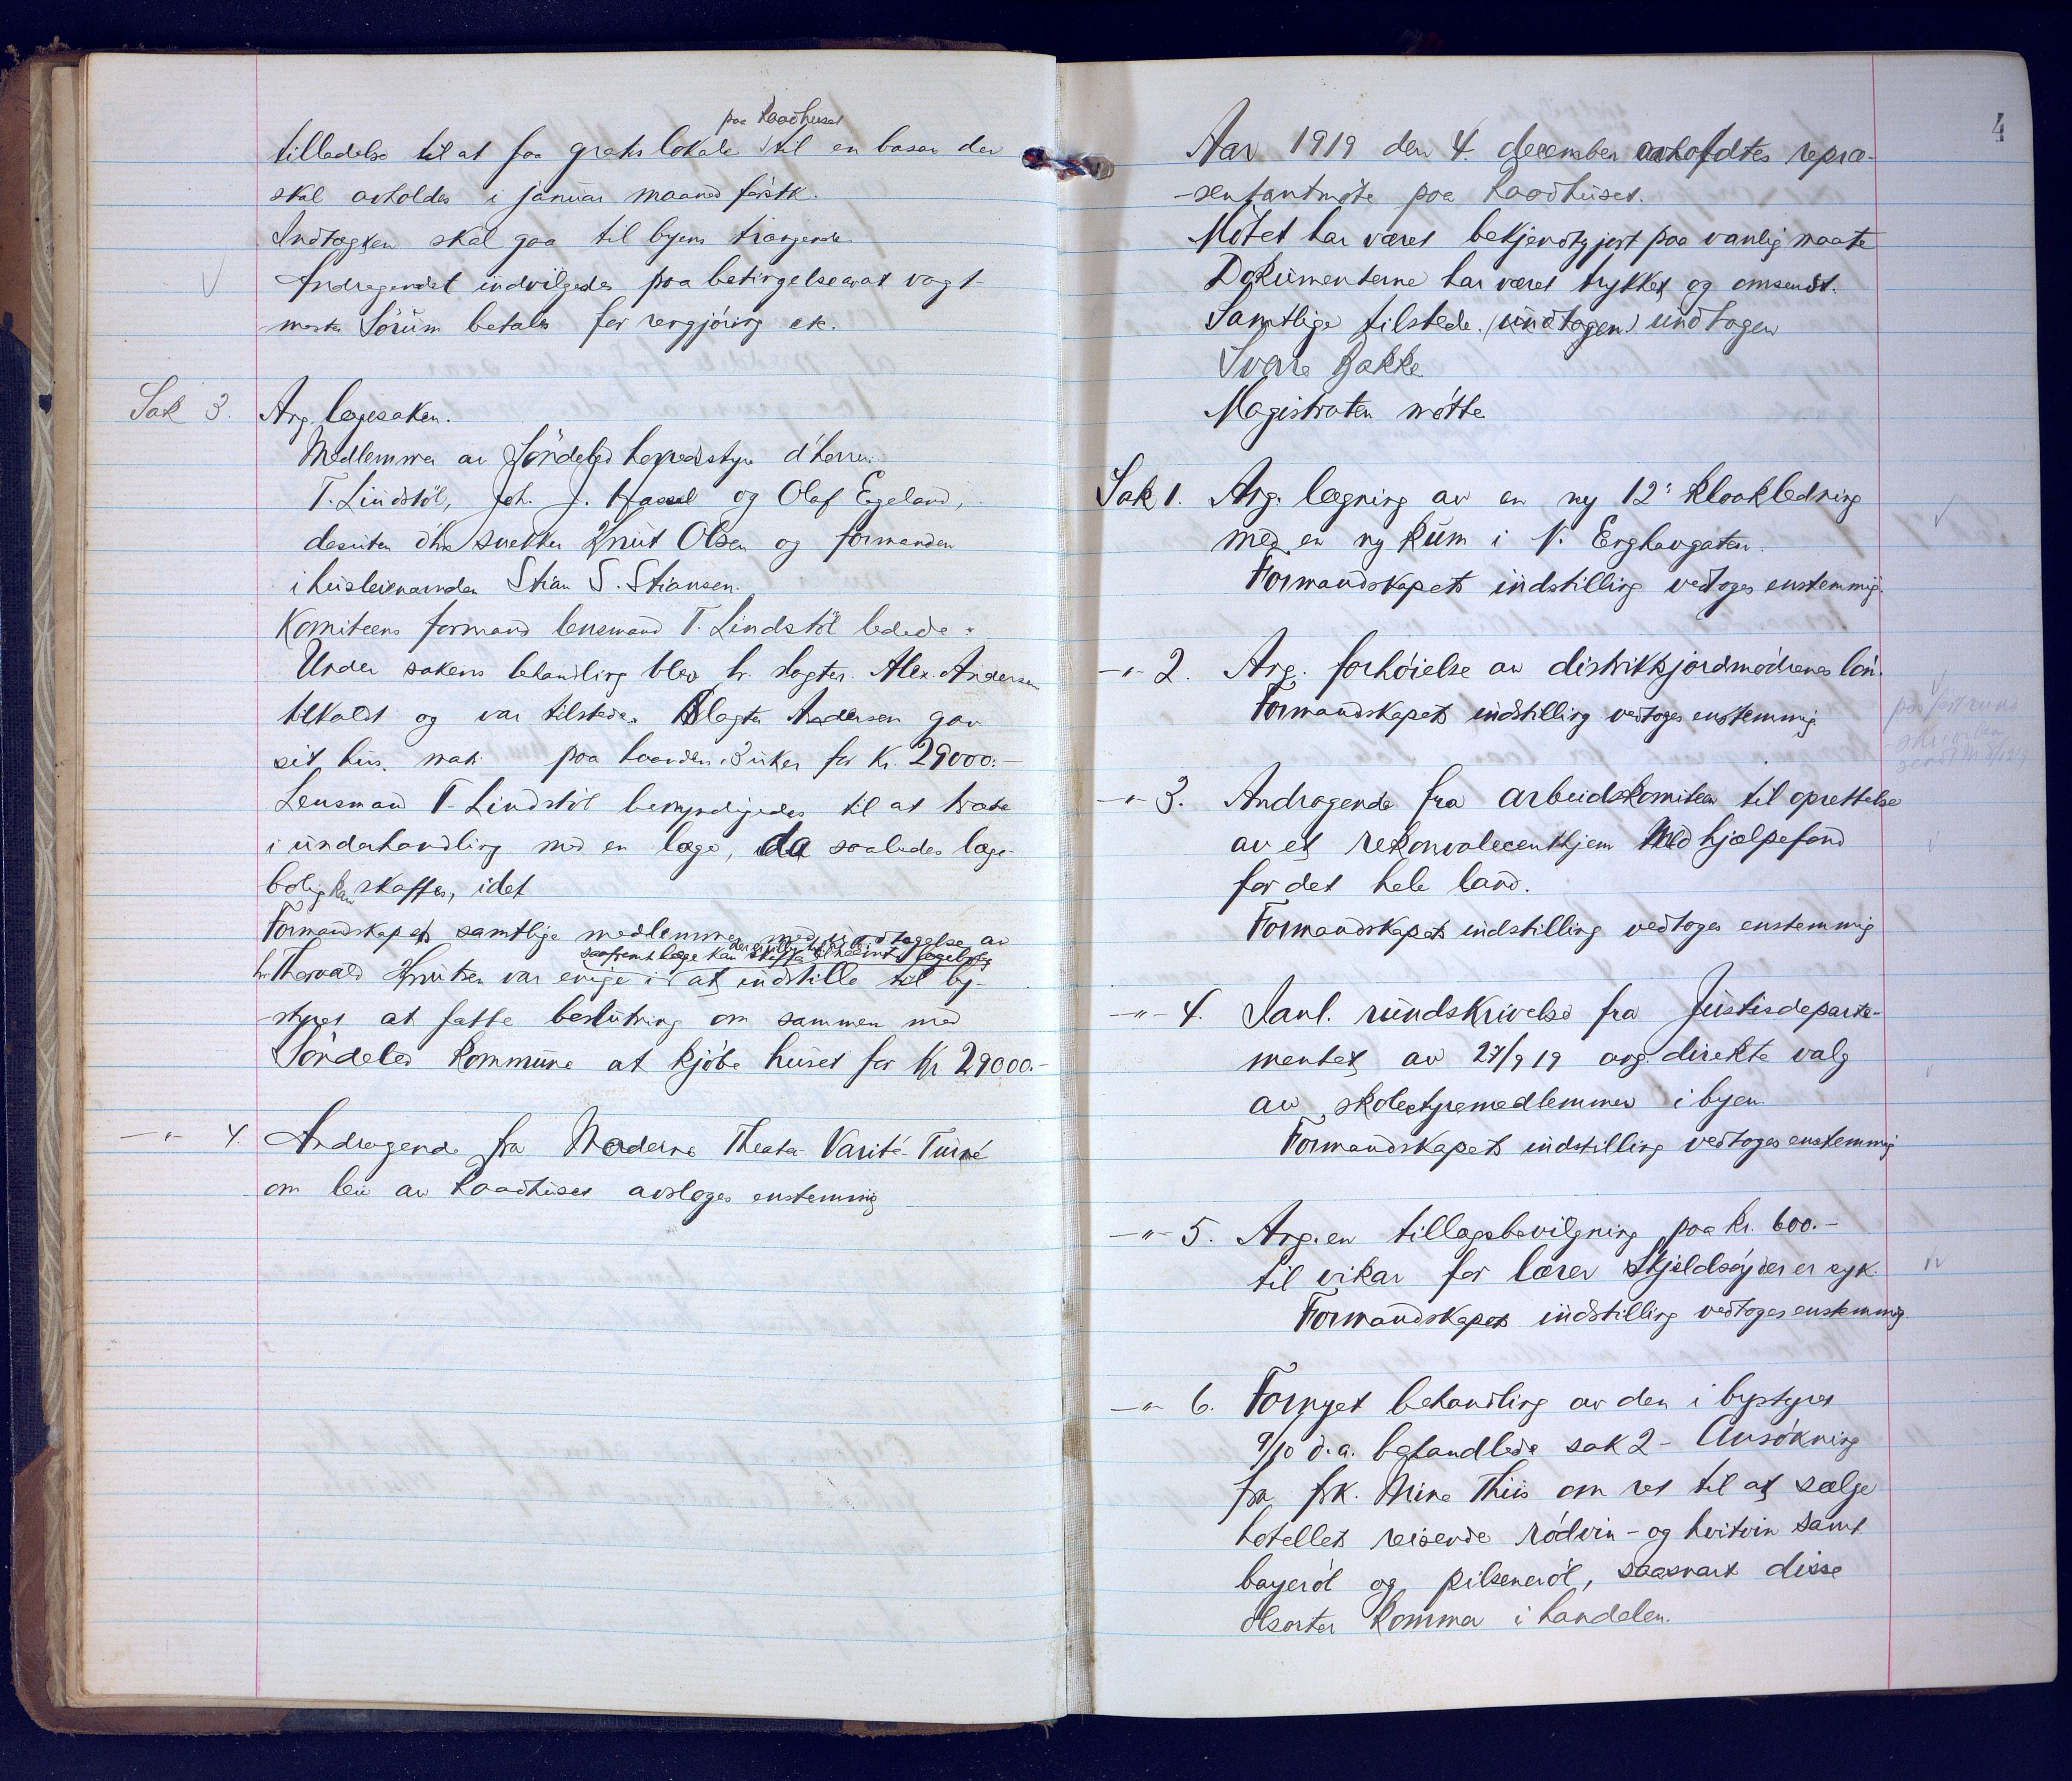 paa Raadhuset
tilladelse til at faa gratis lokale til en basar der
skal avholdes i januar maaned førstk.
Indtægten skal gaa til byens trængende
Andragendet indvilgedes paa betingelse av at vagt-
mester Sørum betales for rengjøring etc.
Sak 3. Ang. lægesaken.
Medlemmer av Søndeled herredsstyre d'herrer
T. Lindstøl, Joh. J. Hasel og Olaf Egeland,
desuten d'hr. snekker Knut Olsen og formanden
i husleienævnden Stian S. Stiansen.
Komiteens formand lensmand T. Lindstøl ledede.
Under sakens behandling blev hr. slagter Alex. Andersen
tilkaldt og var tilstede. Slagter Andersen gav
sit hus, matr. paa haanden i 3 uker for kr. 29000.-
Lensmand T. Lindstøl bemyndigedes til at træte
i underhandling med en læge, da saaledes læge-
bolig kan skaffes, idet
Formandskapets samtlige medlemmer med undtagelse av
saafremt læge kan skaffes
hr. Thorvald Knutsen var enige i at indstille til by-
styret at fatte beslutning om sammen med
Søndeled kommune at kjøbe huset for kr 29000.-
-"- 4. Andragende fra Moderne Theater Varité-Turné
om leie av Raadhuset avsloges enstemmig
4
Aar 1919 den 4. december avholdtes repræ-
-sentantmøte paa Raadhuset.
Møtet har været bekjendtgjort paa vanlig maate
Dokumenterne har været trykket og omsendt.
Samtlige tilstede. (undtagen) undtagen
Svare Bakke.
Magistraten møtte
Sak 1. Ang. lægning av en ny 12" kloakledning
med en ny kum i N. Enghavgaten.
Formandskapets indstilling vedtoges enstemmig.
-"- 2. Ang. forhøielse av distriktsjordmødrenes løn.
Formandskapets indstilling vedtoges enstemmig
-"- 3. Andragende fra arbeidskomiteen til oprettelse
av et rekonvalecenthjem med hjælpefond
for det hele land.
Formandskapets indstilling vedtoges enstemmig
-"- 4. I anl. rundskrivelse fra Justisdeparte-
mentet av 27/9 19 ang. direkte valg
av skolestyremedlemmer i byen.
Formandskapets indstilling vedtoges enstemmig
-"- 5. Ang. en tillægsbevilgning paa kr. 600.-
til vikar for lærer Skjeldsøy der er syk.
Formandskapets indstilling vedtoges enstemmig.
-"- 6. Fornyet behandling av den i bystyret
9/10 d.a. behandlede sak 2 - Ansøkning
fra frk. Mina Thiis om ret til at sælge
hotellets reisende rødvin- og hvitvin samt
bayerøl og pilsenerøl, saasnart disse
ølsorter kommer i handelen.